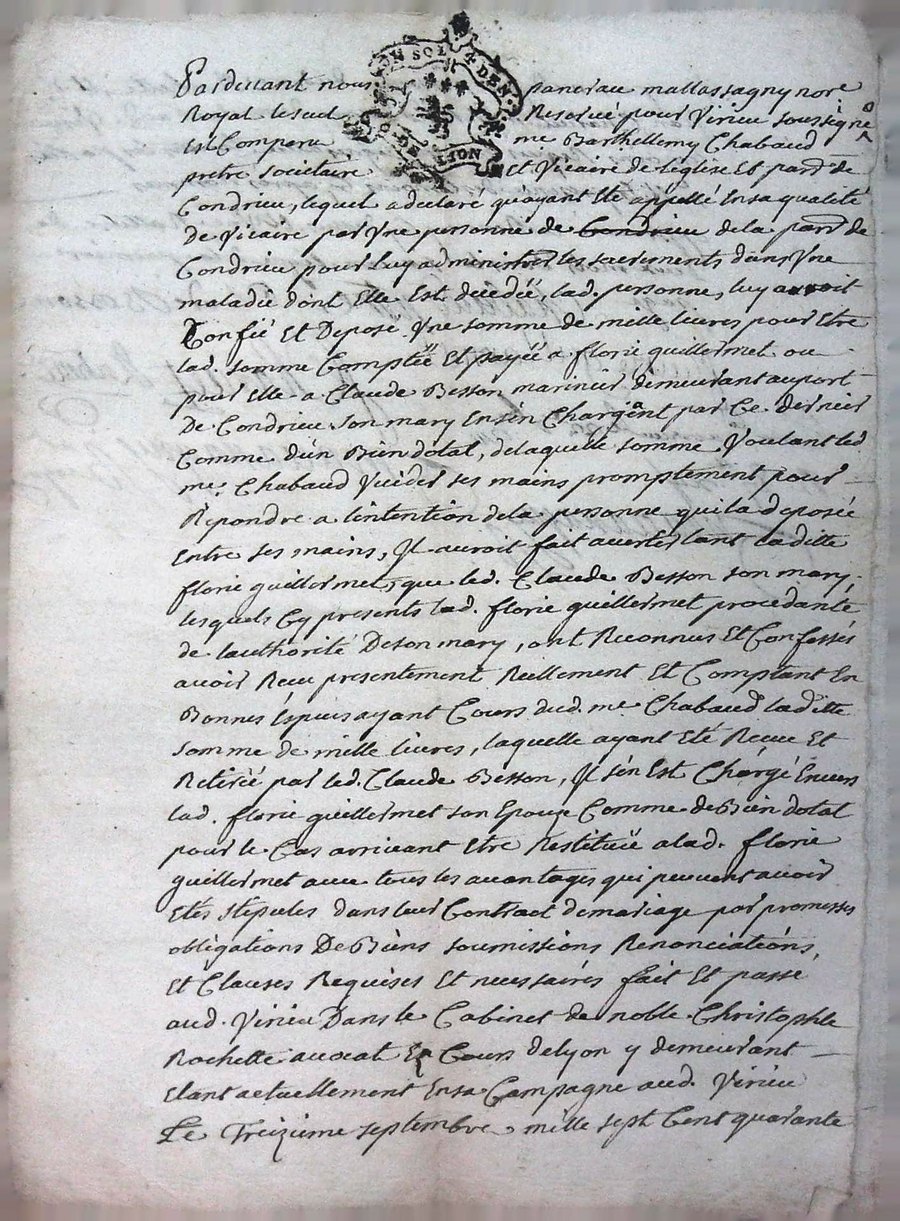 UN SOL 4 DEN.
DE LYON
Pardevant nous pancrau mallassagny nore
Royal le seul Reservé pour Virieu soussigné
Est Comparu me Barthellemy Chabaud
pretre societaire et Vicaire de leglise Et parr. de
Condrieu, lequel a declaré qu'ayant Eté appellé En sa qualité
De Vicaire par Une personne de Condrieu de la parr. de
Condrieu pour luy administrer les sacrements dans Une
maladie dont Elle Est decedéé, lad. personne, luy avoit
Confié Et Deposé Une somme de mille livres pour Etre
lad. somme Comptéé Et payéé a florie guillermet ou
pour Elle a Claude Besson marinier demeurant au port
De Condrieu son mary En s'en Chargeant par Ce dernier
Comme d'un Bien dotal, de laquelle somme Voulant led
me. Chabaud Vuider ses mains promptement pour
Repondre a l'intention de la personne qui la deposéé
Entre ses mains, Il auroit fait avertir tant laditte
florie guillermet, que led. Claude Besson son mary,
lesquels Cy presents lad. florie guillermet procedante
de lauthorité De son mary, ont Reconnus Et Confessés
avoir Receu presentement Reellement Et Comptant En
Bonnes Especes ayant Cours dud. me Chabaud laditte
somme de mille livres, laquelle ayant Eté Receue Et
Retiréé par led. Claude Besson, Il s'en Est Chargé Envers
lad. florie guillermet son Epouze Comme de Bien dotal
pour le Cas arrivant Etre Restituéé a lad. florie
guillermet avec tous les avantages qui peuvent avoir
Etés stipulés dans leur Contract de mariage par promesses
obligations De Biens soumissions Renonciations,
Et Clauses Requises Et necessaires fait Et passé
aud. Virieu Dans le Cabinet de noble Christophle
Rochette avocat En Cours de lyon y demeurant
Etant actuellement En sa Campagne aud. Virieu
Le Treizieme septembre mille sept Cent quarante